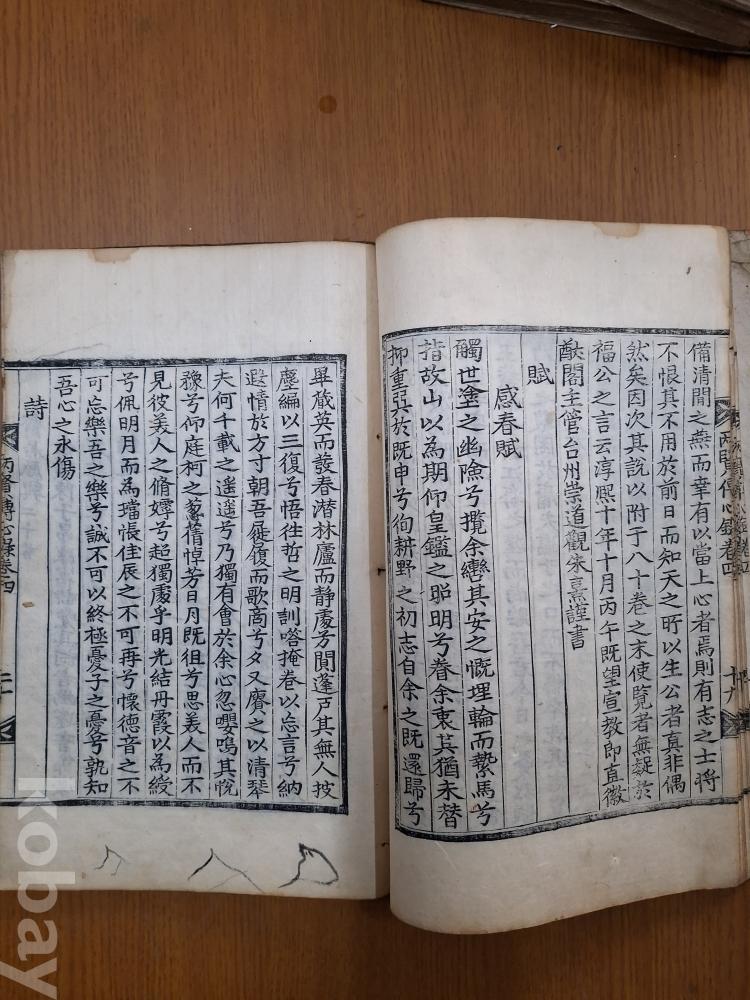 備清閒之燕而幸有以當上心者焉則有志之士將
不恨其不用於前日而知天之所以生公者真非偶
然矣因次其說以附于八十卷之末使覧者無疑於
福公之言云淳熙十年十月丙午既望宣教郎直徽
猷閣主管台州崇道觀朱熹謹書
賦
感春賦
觸世塗之幽險兮攬余轡其安之慨埋輪而縶馬兮
指故山以為期仰皇鑑之昭明兮眷余衷其猶未替
抑重巽於既申兮徇耕野之初志自余之既還歸兮
畢藏英而發春潜林廬而静處兮閴蓬戸其無人披
塵編以三復兮悟往哲之明訓嗒掩卷以忘言兮納
遐情於方寸朝吾屣履而歌商兮夕又賡之以清琴
夫何千載之遥遥兮乃獨有會於余心忽嚶鳴其悅
豫兮仰庭柯之葱蒨悼芳日月既徂兮思美人而不
見彼美人之脩嫮兮超獨處乎明光結丹霞以為綬
兮佩明月而為璫悵佳辰之不可再兮懷德音之不
可忘樂吾之樂兮誠不可以終極憂子之憂兮孰知
吾心之永傷
詩
兩賢傳心錄卷四
kobay